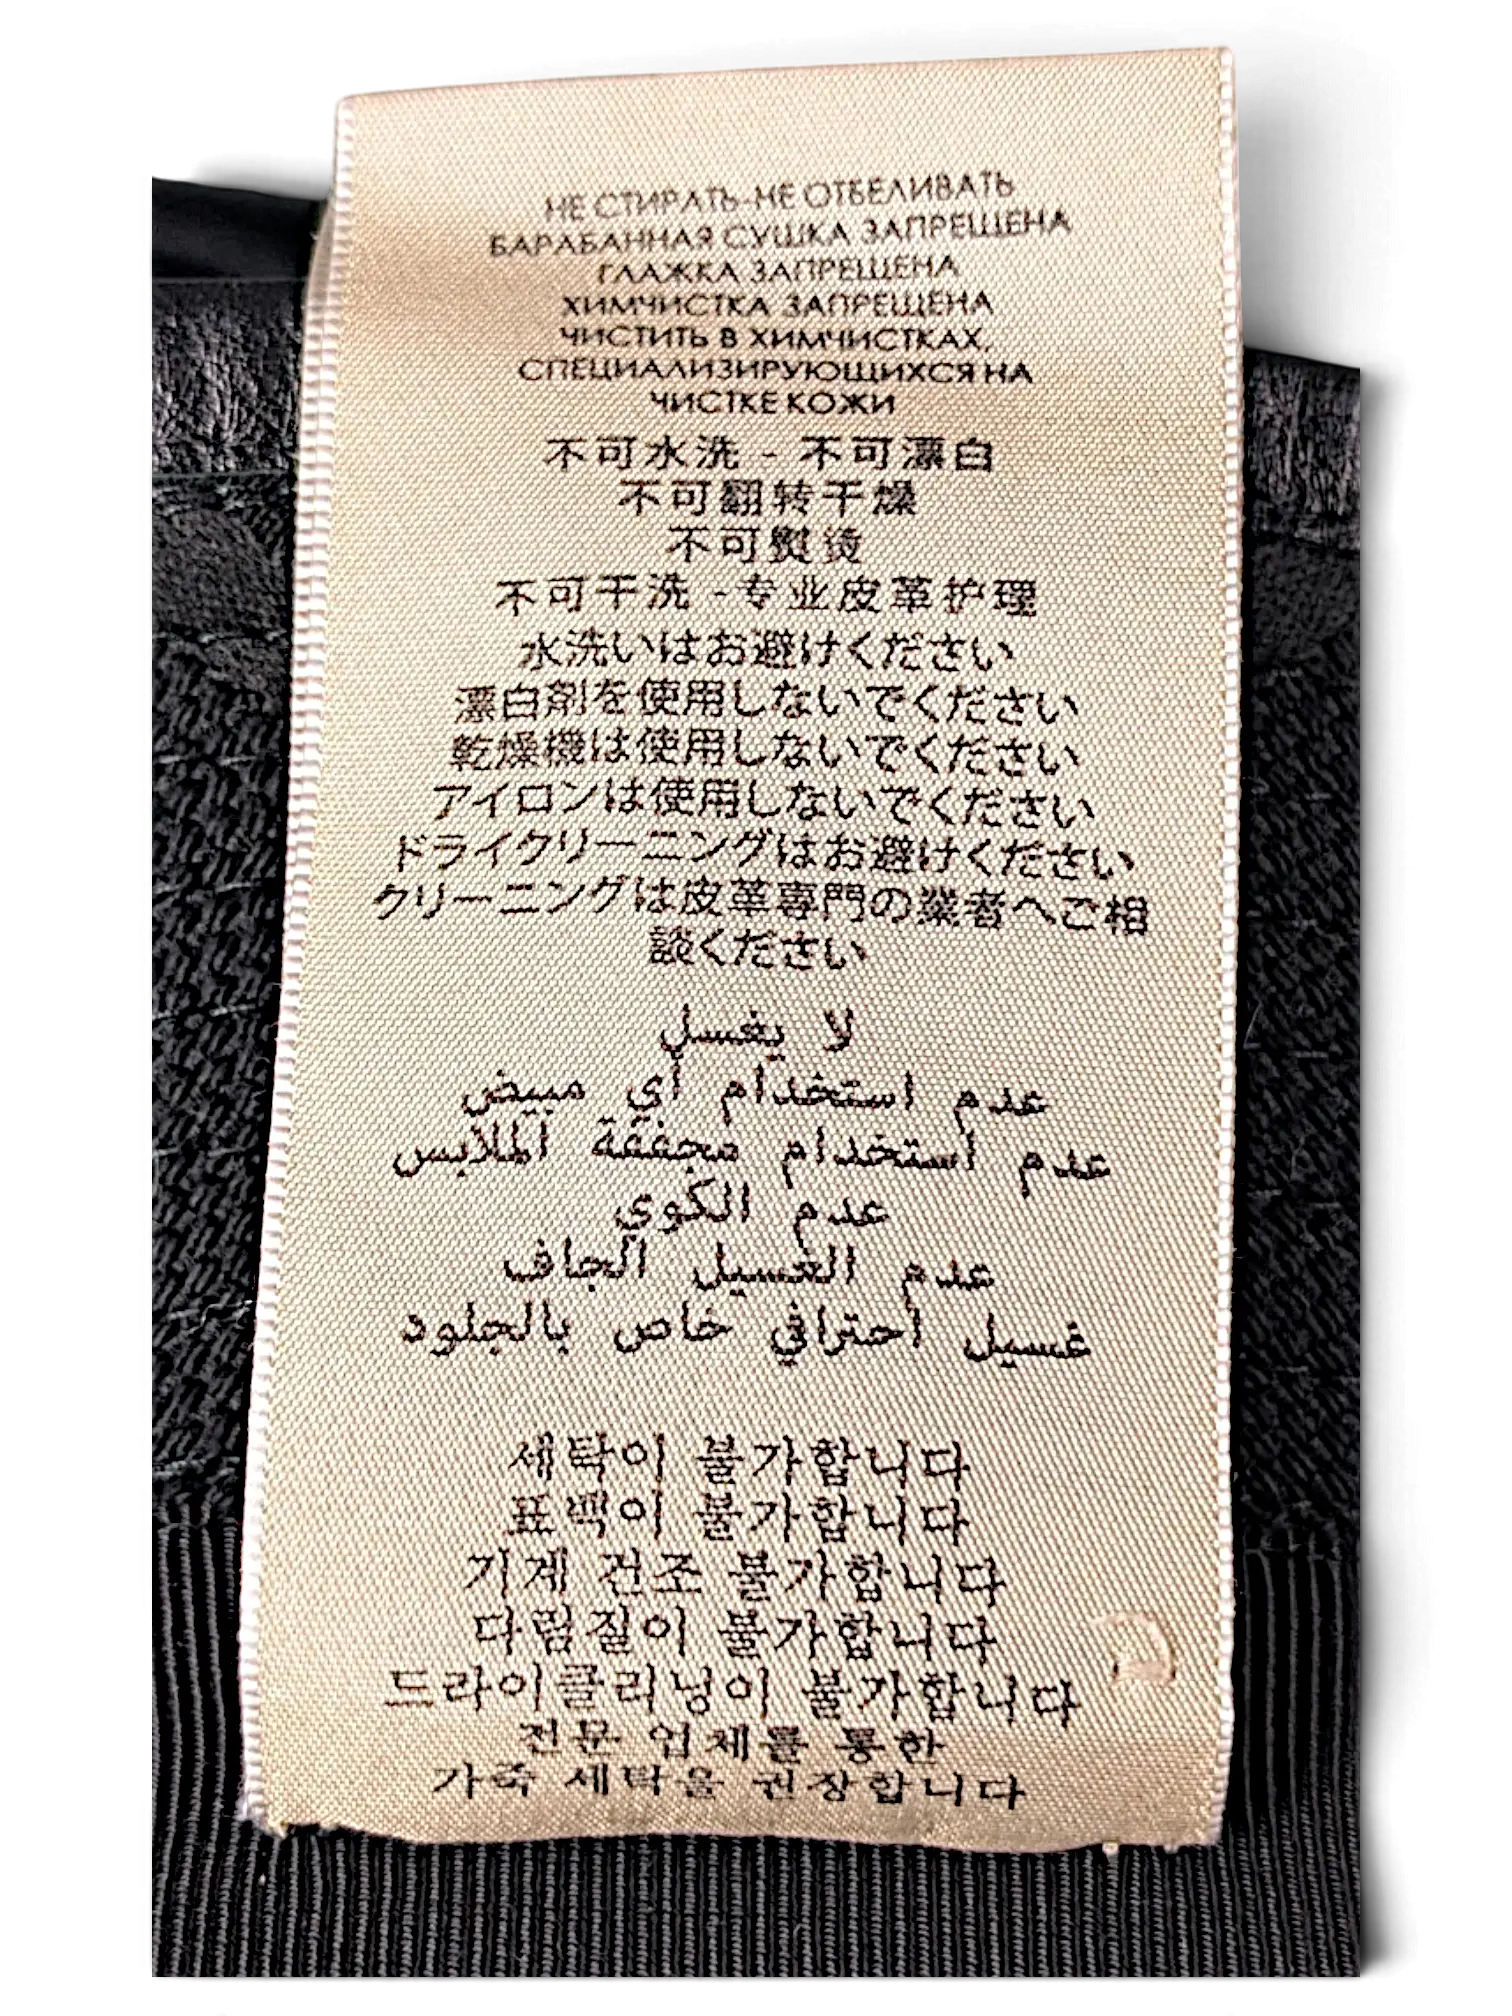 НЕ СТИРАТЬ-НЕ ОТБЕЛИВАТЬ
БАРАБАННАЯ СУШКА ЗАПРЕЩЕНА
ГЛАЖКА ЗАПРЕЩЕНА
ХИМЧИСТКА ЗАПРЕЩЕНА
ЧИСТИТЬ В ХИМЧИСТКАХ,
СПЕЦИАЛИЗИРУЮЩИХСЯ НА
ЧИСТКЕ КОЖИ
不可水洗 - 不可漂白
不可翻转干燥
不可熨烫
不可干洗 -专业皮革护理
水洗いはお避けください
漂白剤を使用しないでください
乾燥機は使用しないでください
アイロンは使用しないでください
ドライクリーニングはお避けください
クリーニングは皮革専門の業者へご相
談ください
لا يغسل
عدم استخدام أي مبيض
عدم استخدام مجففة الملابس
عدم الكوي
عدم الغسيل الجاف
غسيل احترافي خاص بالجلود
세탁이 불가합니다
표백이 불가합니다
기계 건조 불가합니다
다림질이 불가합니다
드라이클리닝이 불가합니다
전문 업체를 통한
가죽 세탁을 권장합니다